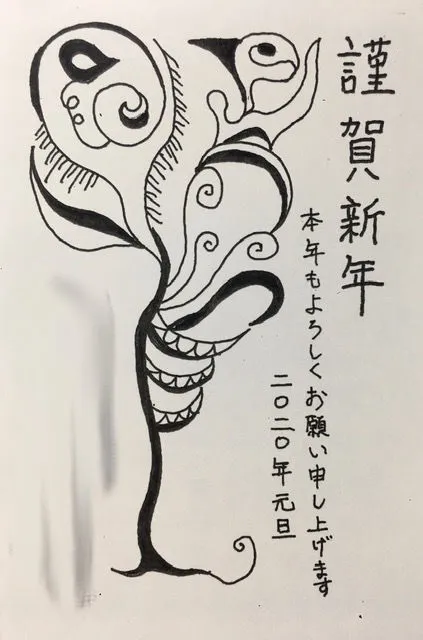 謹賀新年
本年もよろしくお願い申し上げます
二〇二〇年元旦